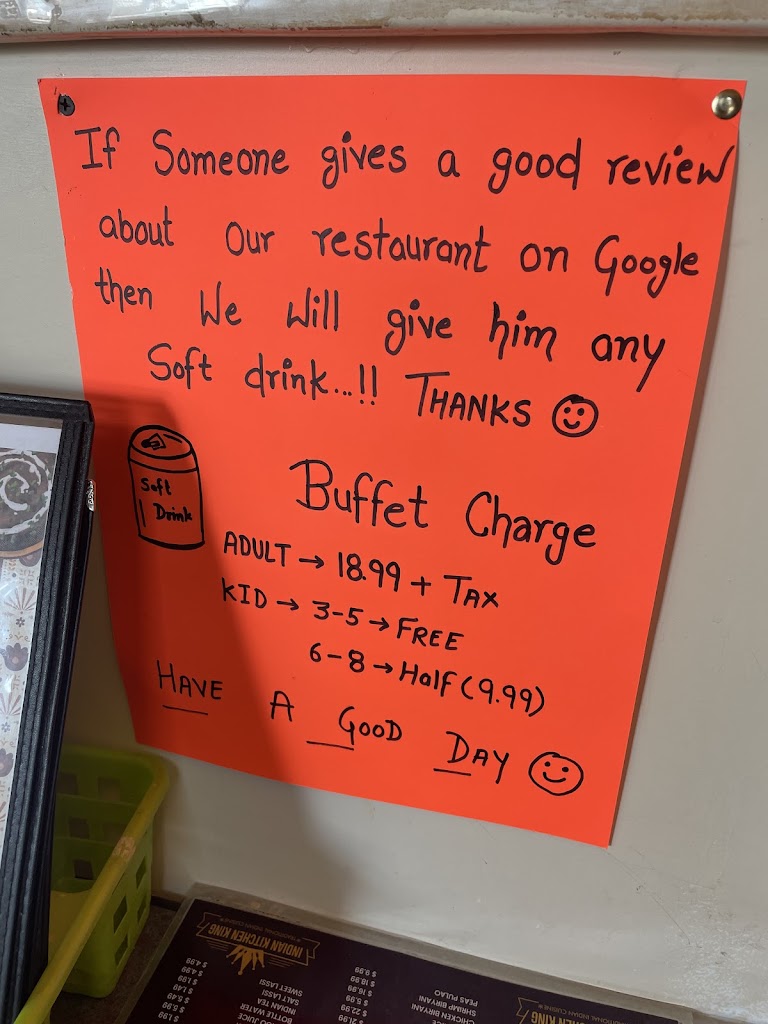 If Someone gives a good review
about Our restaurant on Google
then We Will give him any
Soft drink...!! THANKS
Soft
Drink
Buffet Charge
ADULT → 18.99 + TAX
KID → 3-5 → FREE
6-8 → Half (9.99)
HAVE A GOOD DAY
INDIAN KITCHEN KING
SWEET LASSI
SALT LASSI
INDIAN TEA
BOTTLE WATER
PEAS PULAO
SHRIMP BIRYANI
CHICKEN BIRYANI